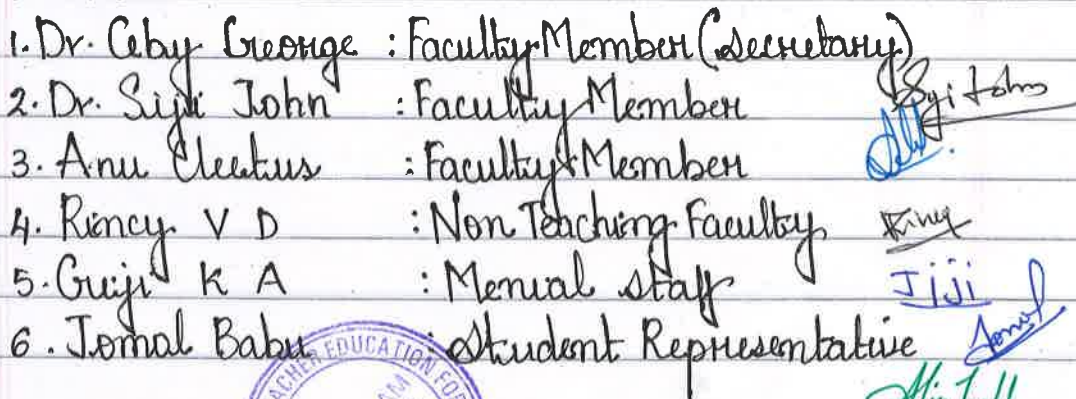 1. Dr. Ceby George : Faculty Member (Secretary)
2. Dr. Siji John : Faculty Member Syi John
3. Anu Cleetus : Faculty Member
4. Rincy V D : Non Teaching Faculty Rincy
5. Griji K A : Menial staff Jiji
6. Jomal Babu : Student Representative Jomal
TEACHER EDUCATION FOR